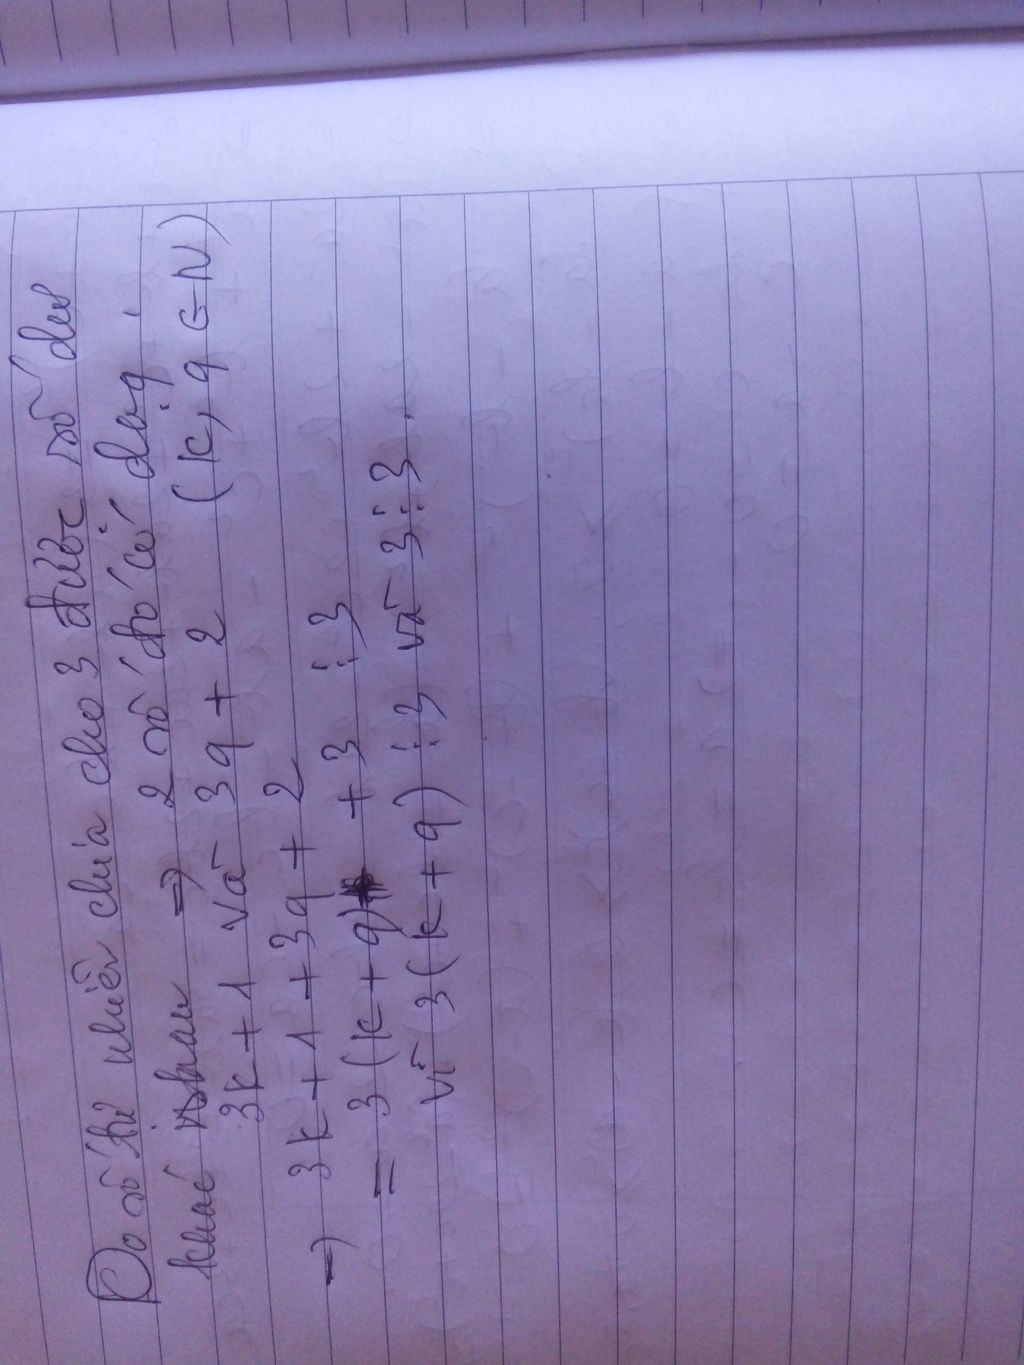 Do số tự nhiên chia cho 3 được số dư
khác nhau => 2 số đó có dạng :
3k + 1 và 3q + 2 (k, q ∈ N)
=> 3k + 1 + 3q + 2
= 3 (k + q) + 3 ⋮ 3
vì 3 (k + q) ⋮ 3 và 3 ⋮ 3.